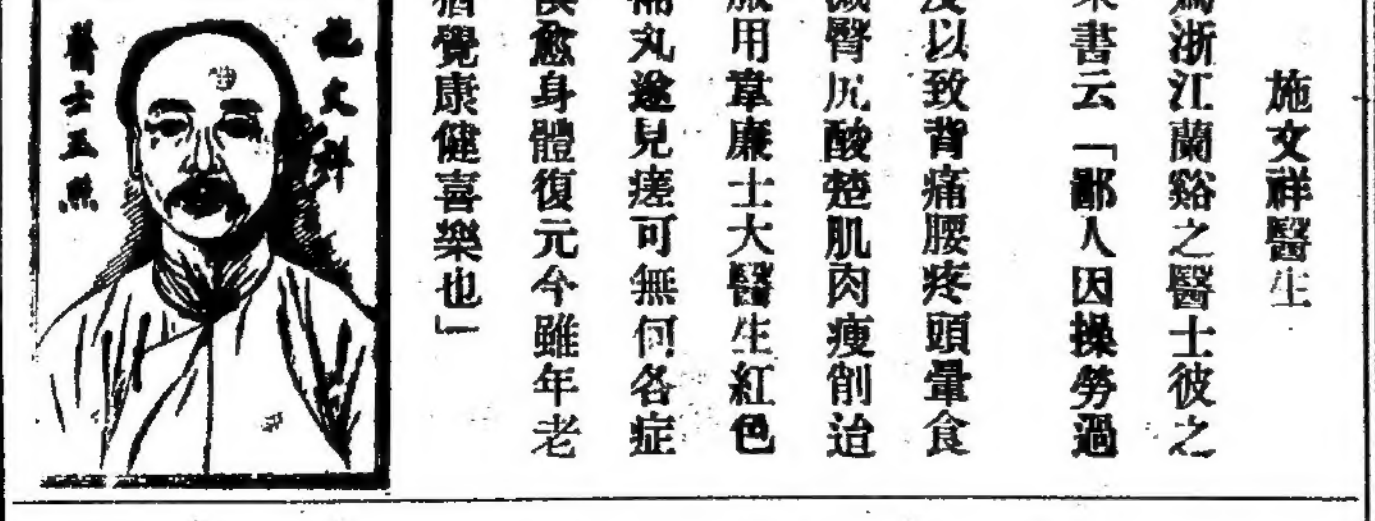 施文祥醫生
為浙江蘭谿之醫士彼之
來書云「鄙人因操勞過
度以致背痛腰疼頭暈食
減臀尻酸楚肌肉瘦削迨
服用韋廉士大醫生紅色
補丸遂見瘥可無何各症
俱愈身體復元今雖年老
猶覺康健喜樂也」
施文祥
醫士玉照